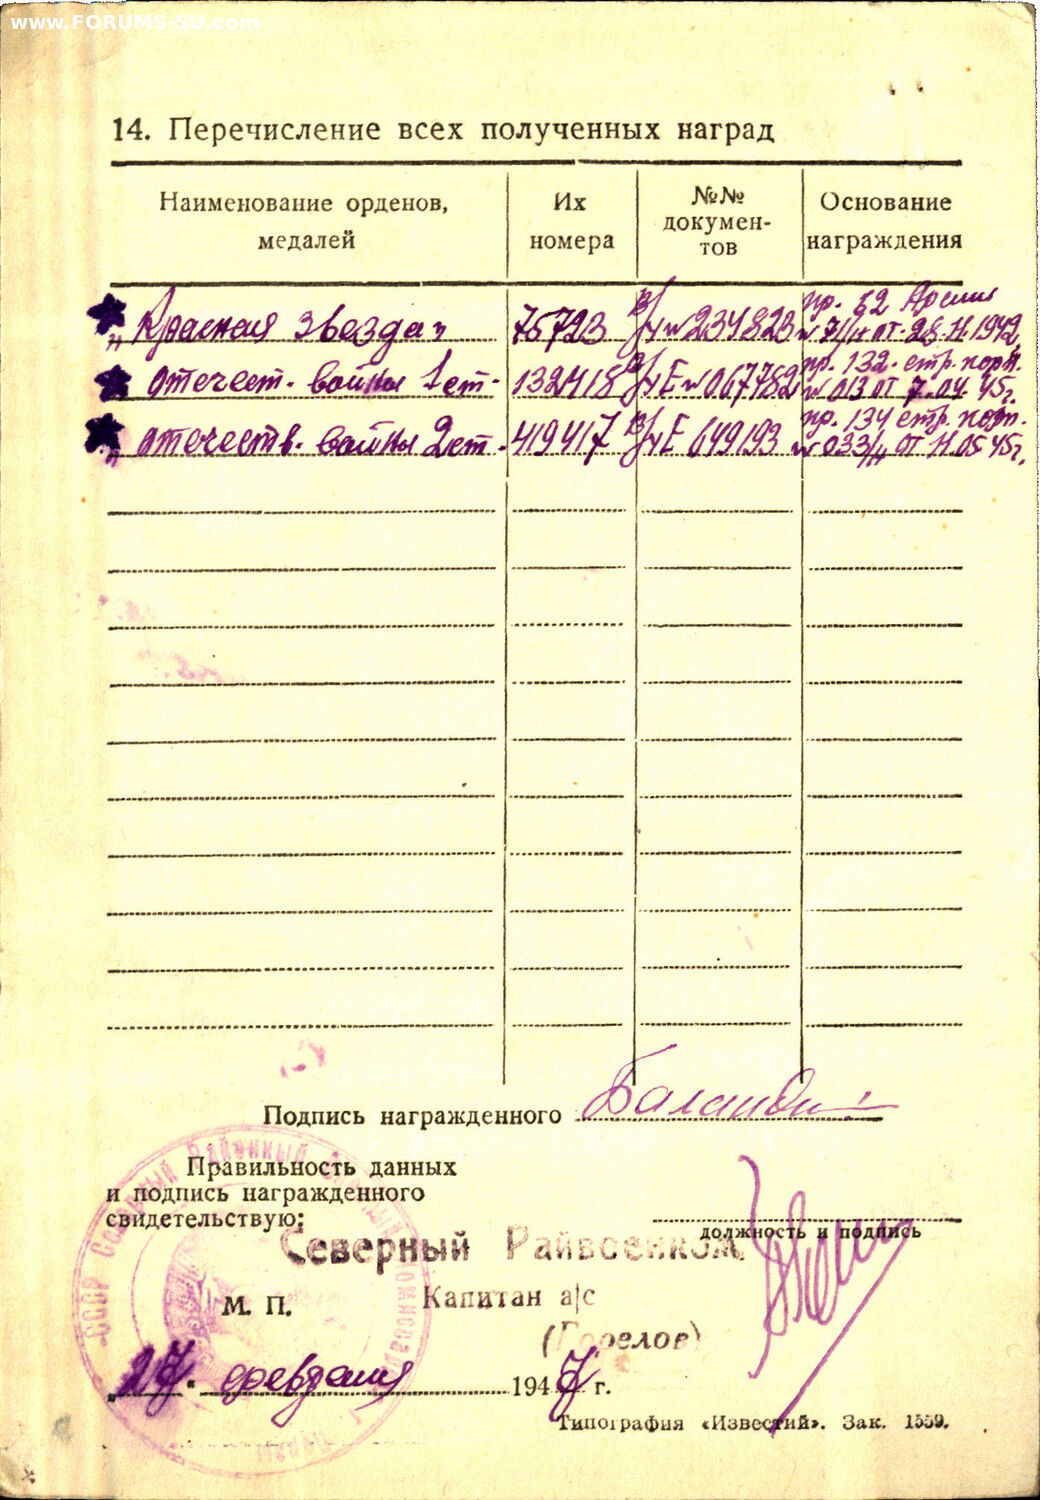 www.FORUMS-SU.com
14. Перечисление всех полученных наград
Наименование орденов, медалей
Их номера
№№ докумен-тов
Основание награждения
„Красная звезда" 75723 № 234823 пр. 52 Армии № 7/н от 28.11.1942
отечест. войны 1 ст. 132418 Е № 067782 пр. 132 стр. корп. № 013 от 7.04.45г.
„отечеств. войны 2 ст. 419417 Е 649193 пр. 134 стр. корп. № 033/н от 11.05.45г.
Подпись награжденного Баландин
Правильность данных
и подпись награжденного
свидетельствую:
должность и подпись
Северный Райвоенком
М. П.
Капитан а/с
(Горелов)
„27" февраля 1947 г.
Типография «Известий». Зак. 1559.